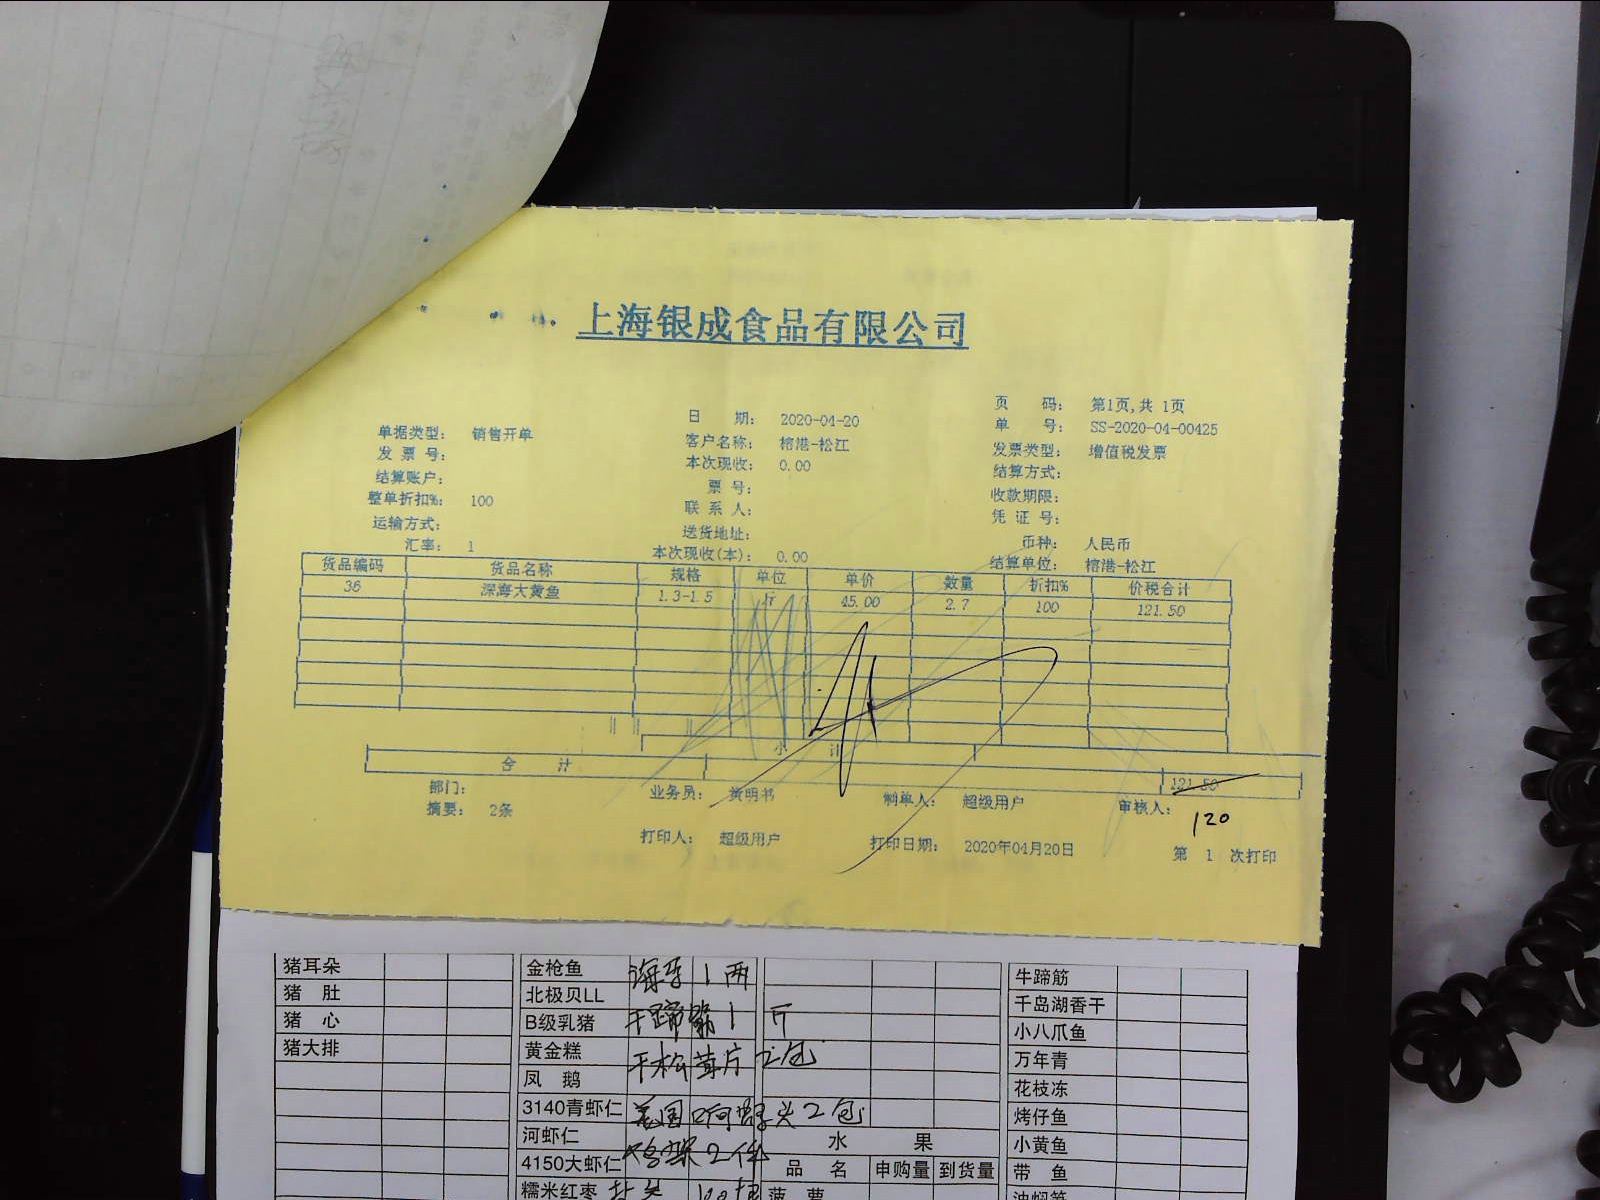 上海银成食品有限公司
单据类型： 销售开单 日 期： 2020-04-20 页 码： 第1页,共 1页
发 票 号： 客户名称： 榕港-松江 单 号： SS-2020-04-00425
结算账户： 本次现收： 0.00 发票类型： 增值税发票
整单折扣%： 100 票 号： 结算方式：
运输方式： 联 系 人： 收款期限：
汇率： 1 送货地址： 凭 证 号：
本次现收(本)： 0.00 币种： 人民币
结算单位： 榕港-松江
货品编码 货品名称 规格 单位 单价 数量 折扣% 价税合计
36 深海大黄鱼 1.3-1.5 斤 45.00 2.7 100 121.50
小 计
合 计 121.50
部门： 业务员： 黄明书 制单人： 超级用户 审核人：
摘要： 2条 120
打印人： 超级用户 打印日期： 2020年04月20日 第 1 次打印
猪耳朵 金枪鱼 1两 牛蹄筋
猪 肚 北极贝LL 千岛湖香干
猪 心 B级乳猪 干蹄筋1斤 小八爪鱼
猪大排 黄金糕 干松茸片2包 万年青
凤 鹅 花枝冻
3140青虾仁 2包 烤仔鱼
河虾仁 水 果 小黄鱼
4150大虾仁 品 名 申购量 到货量 带 鱼
糯米红枣 菠 萝 油焖笋